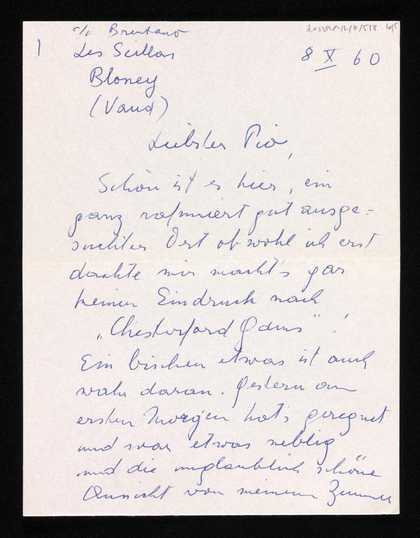 1
c/o Brentano
Les Scillas
Blonay
(Vaud)
8 X 60
Liebster Pio,
Schön ist es hier, ein
ganz raffiniert gut ausge=
suchter Ort obwohl ich erst
dachte mir macht's gar
keinen Eindruck nach
„Chesterford Gdns"!
Ein bischen etwas ist auch
wahr daran. Gestern am
ersten Morgen hat's geregnet
und war etwas neblig
und die unglaublich schöne
Aussicht von meinem Zimmer